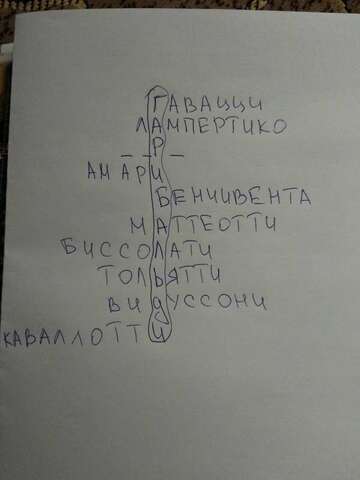 ГАВАЦЦИ
ЛАМПЕРТИКО
_ _ Р _
АМАРИ
БЕНЧИВЕНГА
МАТТЕОТТИ
БИССОЛАТИ
ТОЛЬЯТТИ
ВИДУССОНИ
КАВАЛЛОТТИ